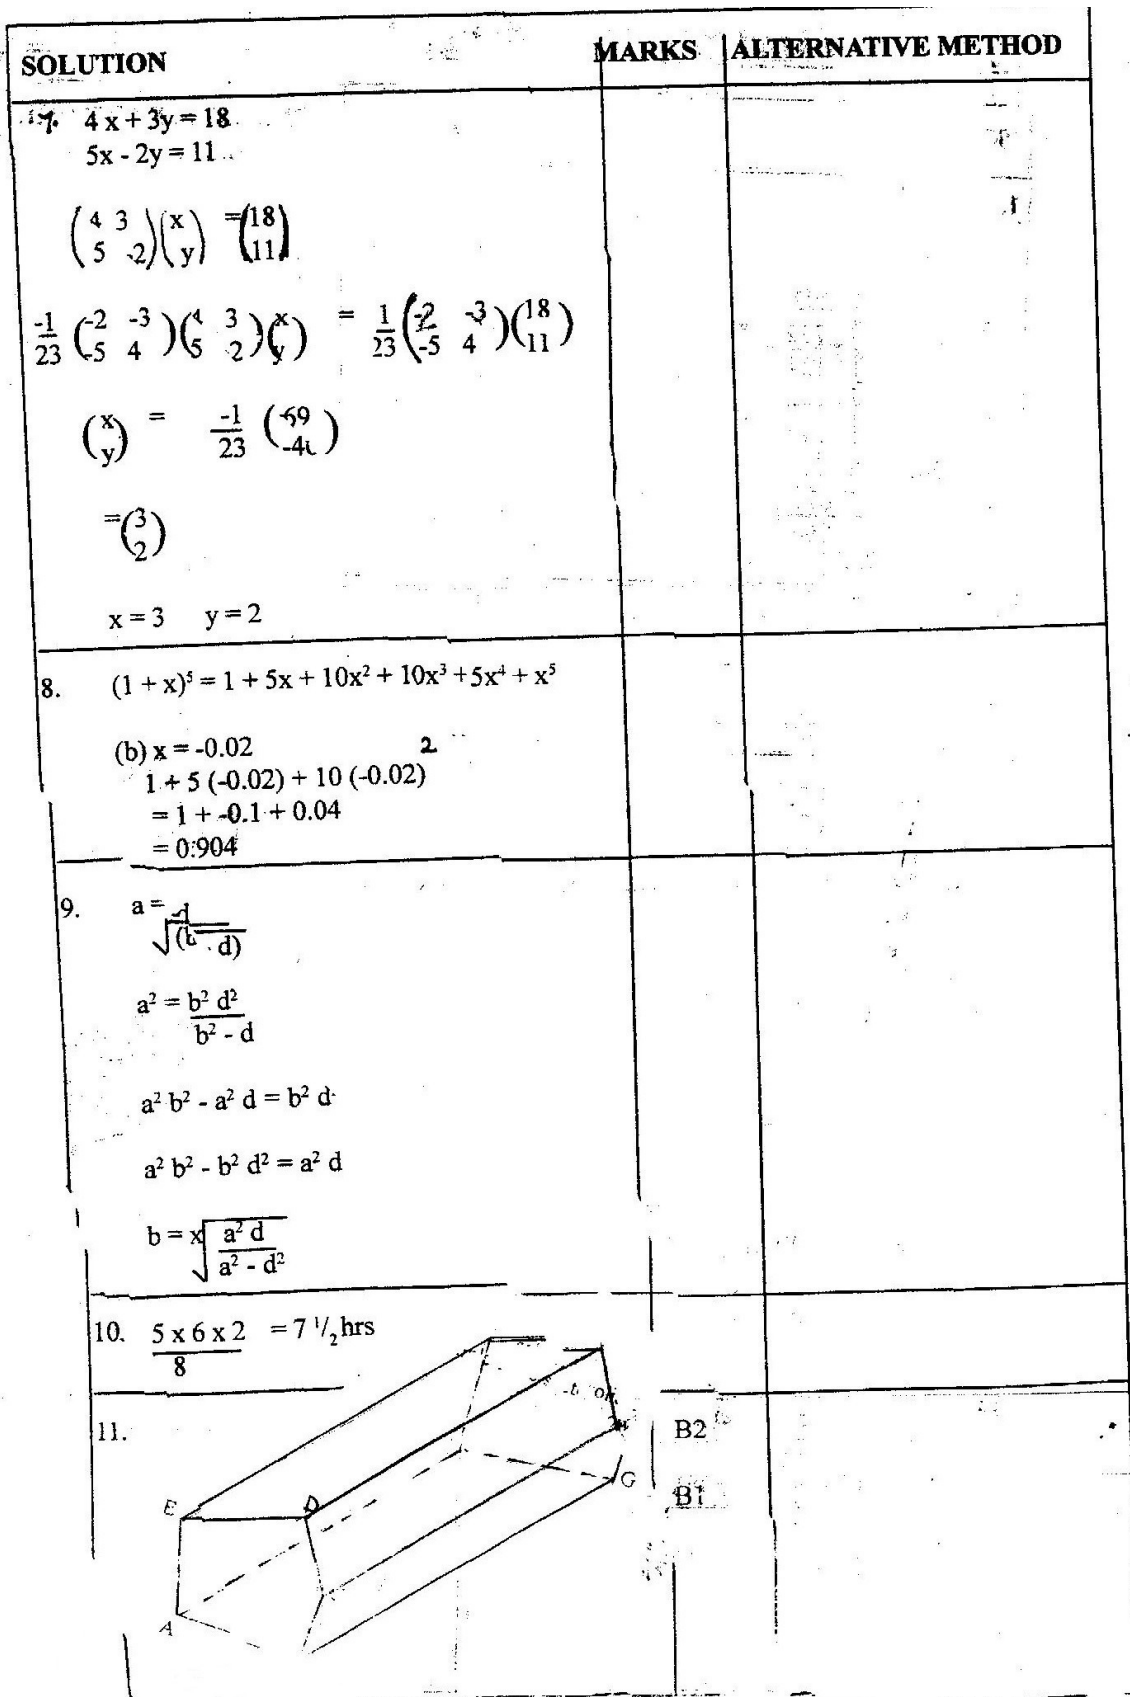 SOLUTION MARKS ALTERNATIVE METHOD
7. 4x + 3y = 18
5x - 2y = 11
(4 3) (x) = (18)
(5 -2) (y) (11)
-1/23 (-2 -3) (4 3) (x) = 1/23 (-2 -3) (18)
(-5 4) (5 2) (y) (-5 4) (11)
(x) = -1/23 (-69)
(y)
= (3)
(2)
x = 3 y = 2
8. (1 + x)⁵ = 1 + 5x + 10x² + 10x³ + 5x⁴ + x⁵
(b) x = -0.02
1 + 5 (-0.02) + 10 (-0.02)²
= 1 + -0.1 + 0.04
= 0.904
9. a =
√ d)
a² = b² d²
b² - d
a² b² - a² d = b² d
a² b² - b² d² = a² d
b = x√ a² d
a² - d²
10. 5 x 6 x 2 = 7 ¹/₂ hrs
8
11. B2
G
E D B1
A